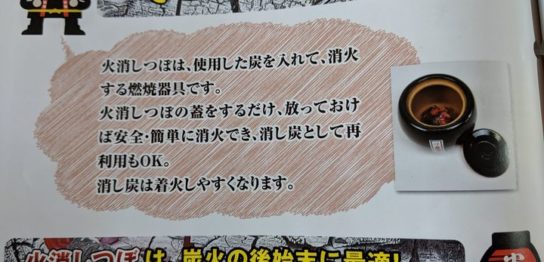 火消しつぼは、使用した炭を入れて、消火
する燃焼器具です。
火消しつぼの蓋をするだけ、放っておけ
ば安全・簡単に消火でき、消し炭として再
利用もOK。
消し炭は着火しやすくなります。
火消しつぼは、炭火の後始末に最適!